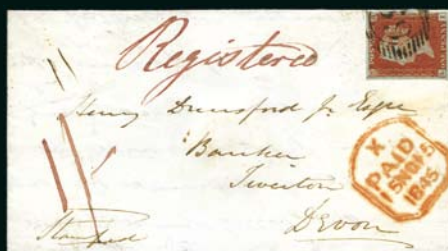 Registered
Henry Dunsford Jr Esqre
Banker
Tiverton
Devon
X
PAID
1845